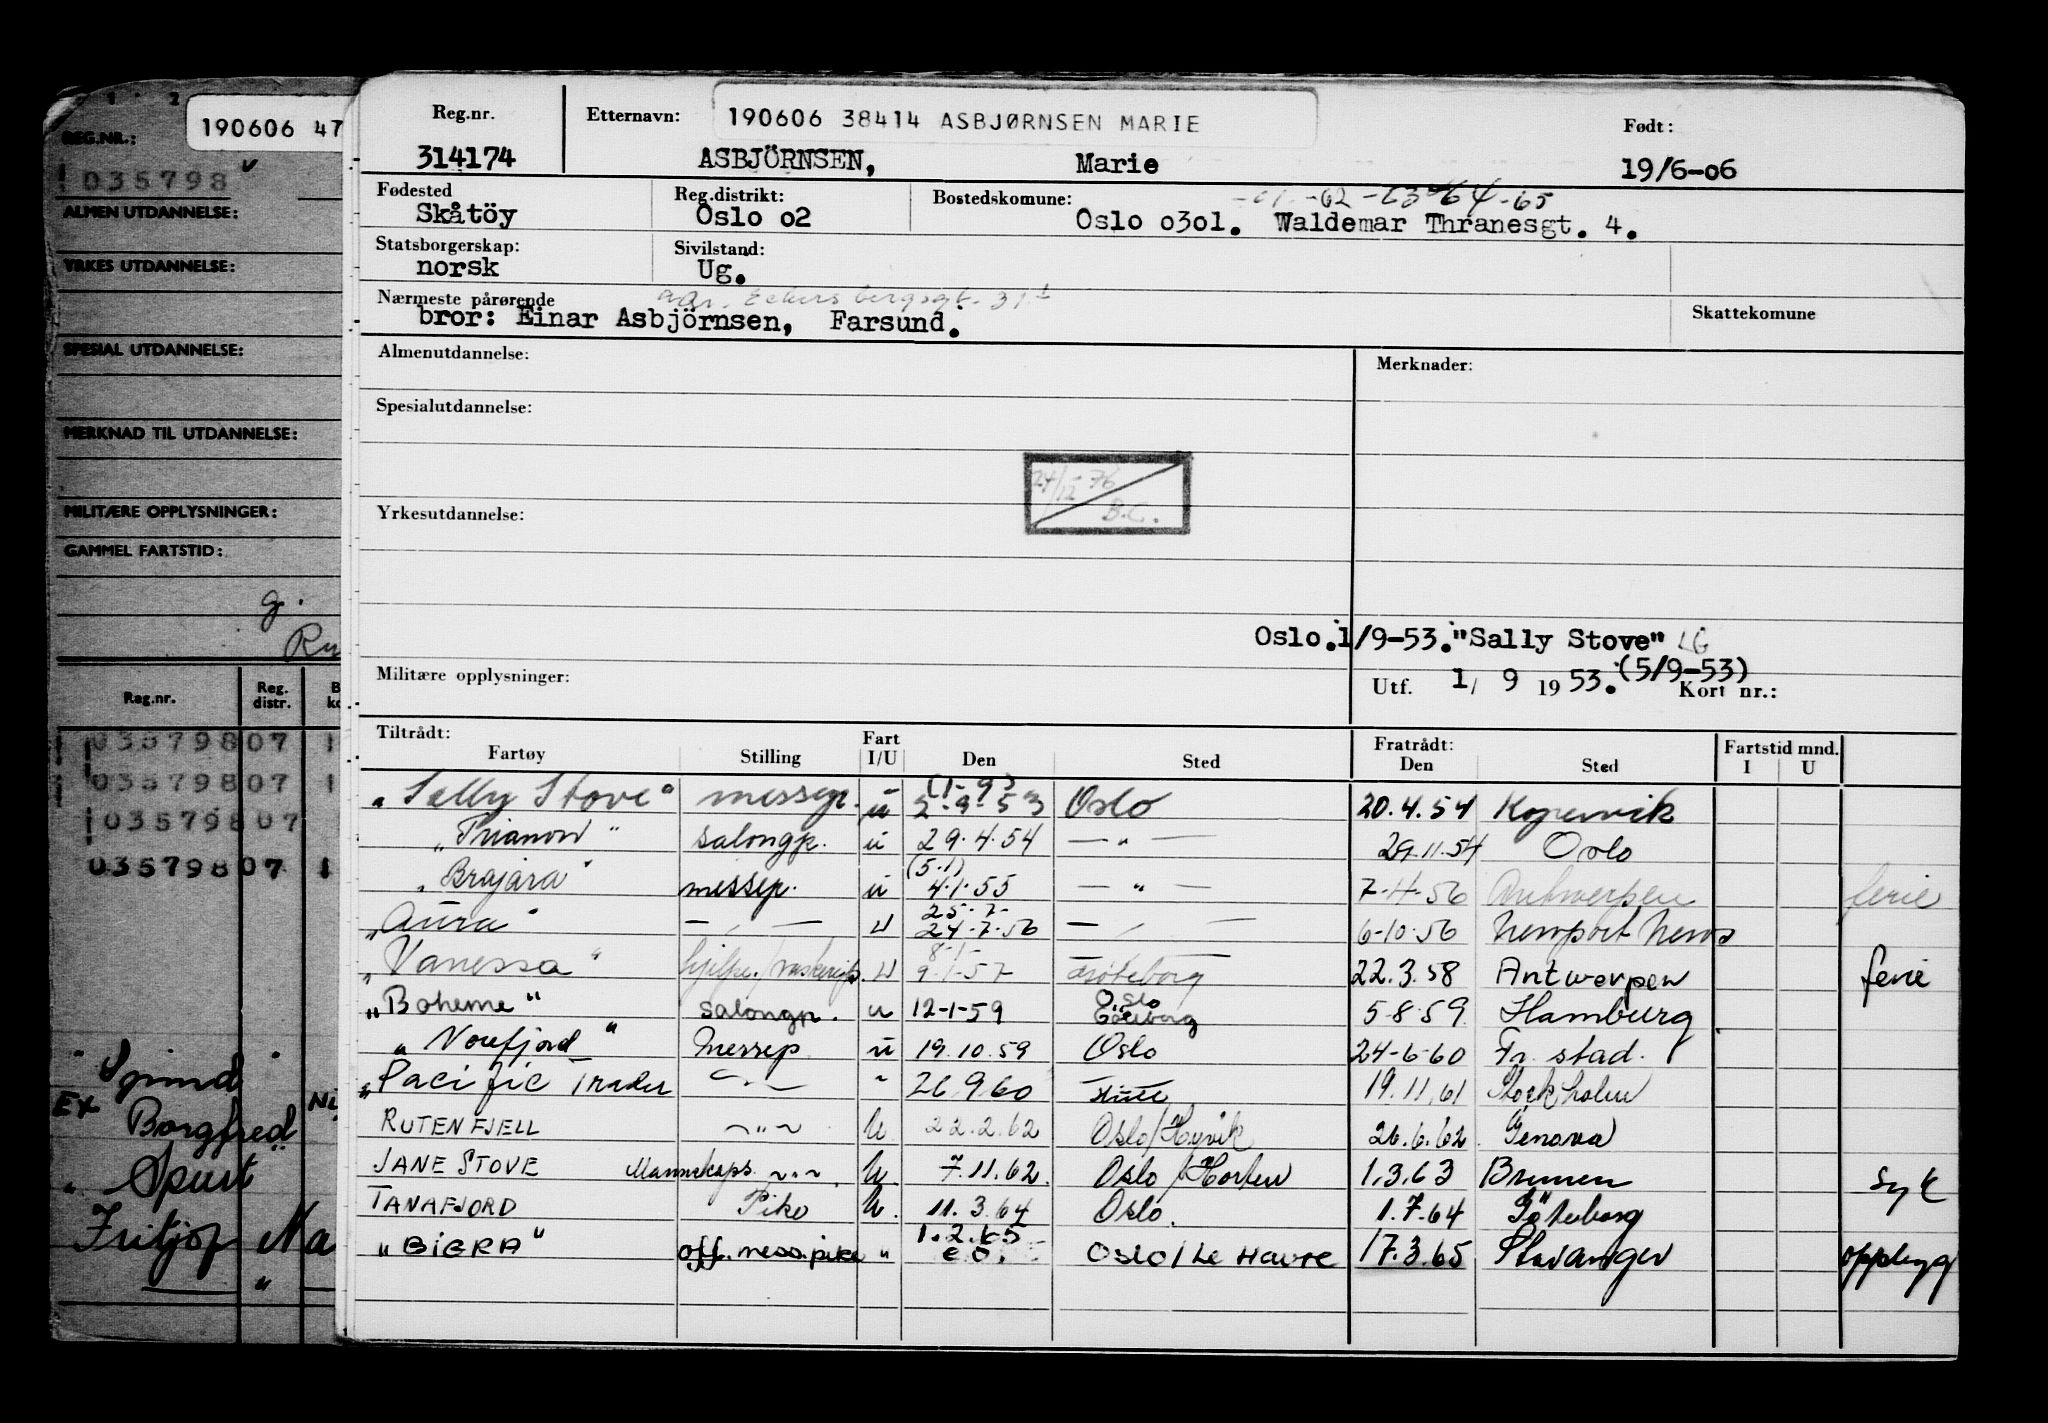 1 2
REG.NR.: 190606 47
035798
ALMEN UTDANNELSE:
YRKES UTDANNELSE:
SPESIAL UTDANNELSE:
MERKNAD TIL UTDANNELSE:
MILITÆRE OPPLYSNINGER:
GAMMEL FARTSTID:
g.
Reg.nr. Reg. distr.
035798 07 1
035798 07 1
035798 07
035798 07 1
Spind
Ex Borgfred
" Spurt
Fritjof Na
"
Reg.nr. Etternavn: 190606 38414 ASBJØRNSEN MARIE Født:
314174 ASBJÖRNSEN, Marie 19/6-06
Fødested Reg.distrikt: Bostedskomune: -62-63-64-65
Skåtöy Oslo o2 Oslo o3ol. Waldemar Thranesgt. 4.
Statsborgerskap: Sivilstand:
norsk Ug.
Nærmeste pårørende adr. Eckersbergsgt. 31
bror: Einar Asbjörnsen, Farsund. Skattekomune
Almenutdannelse: Merknader:
Spesialutdannelse:
24/12-76
B.C.
Yrkesutdannelse:
Oslo.1/9-53."Sally Stove" LG
Militære opplysninger: Utf. 1/ 9 1953.(5/9-53) Kort nr.:
Tiltrådt: Fart Fratrådt: Fartstid mnd.
Fartøy Stilling I/U Den Sted Den Sted I U
"Sally Stove" messep. u (1-9) 2-9-53 Oslo 20.4.54 Kopervik
"Trianon" salongp. u 29.4.54 — " — 29.11.54 Oslo
"Brajara" messep. u (5.1) 4.1.55 — " — 7-4-56 Antwerpen ferie
"Aura" — " — U 25-7- 24-7-56 — " — 6-10-56 Newport News
"Vanessa" U 8-1- 9-1-57 Göteborg 22.3.58 Antwerpen ferie
"Boheme" salongp. u 12-1-59 Oslo Göteborg 5-8-59 Hamburg
"Norefjord" Messep u 19.10.59 Oslo 24-6-60 Fr.stad.
"Pacific Trader —"— " 26.9.60 19.11.61 Stockholm
RUTENFJELL —"— U. 22.2.62 Oslo/Høyvik 26.6.62 Genova
JANE STOVE Mannskaps —"— U. 7.11.62. Oslo/Horten 1.3.63 Bremen syk
TANAFJORD Pike U. 11.3.64 Oslo. 1.7.64 Göteborg
"BIGRA" off. mess.pike " 1.2.65 e.o. Oslo/Le Havre 17.3.65 Stavanger opplegg